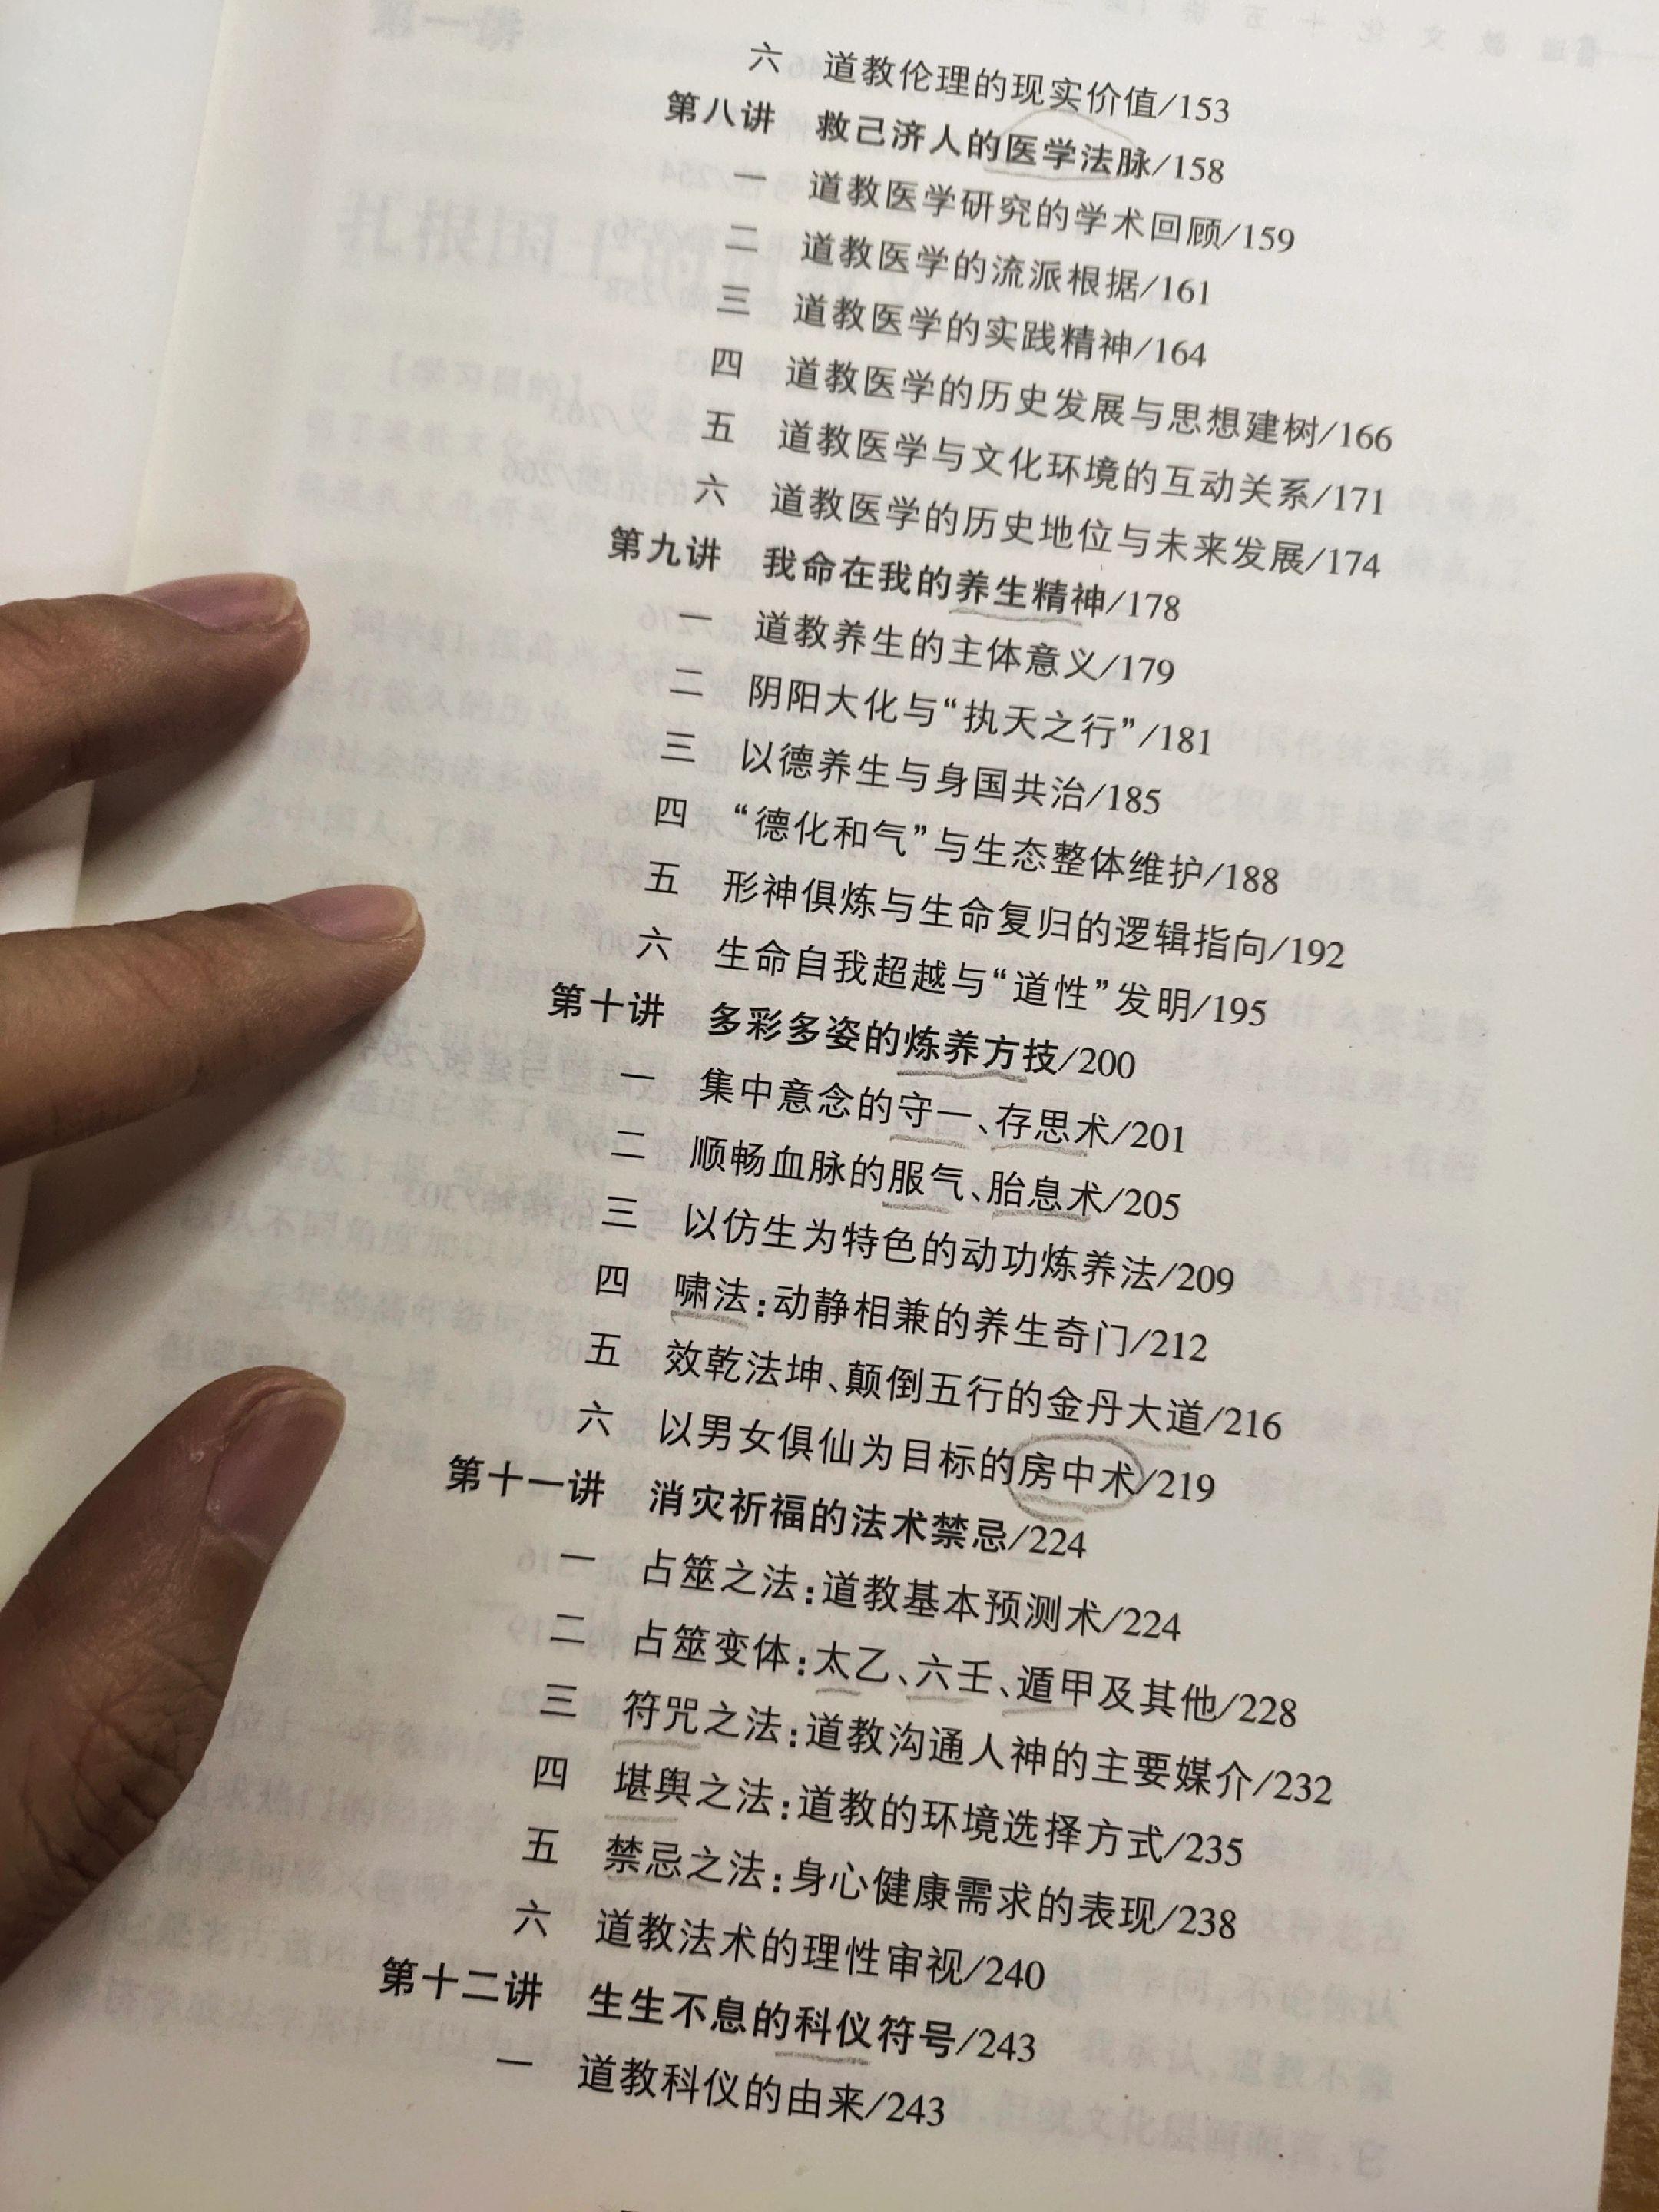 六 道教伦理的现实价值/153
第八讲 救己济人的医学法脉/158
一 道教医学研究的学术回顾/159
二 道教医学的流派根据/161
三 道教医学的实践精神/164
四 道教医学的历史发展与思想建树/166
五 道教医学与文化环境的互动关系/171
六 道教医学的历史地位与未来发展/174
第九讲 我命在我的养生精神/178
一 道教养生的主体意义/179
二 阴阳大化与“执天之行”/181
三 以德养生与身国共治/185
四 “德化和气”与生态整体维护/188
五 形神俱炼与生命复归的逻辑指向/192
六 生命自我超越与“道性”发明/195
第十讲 多彩多姿的炼养方技/200
一 集中意念的守一、存思术/201
二 顺畅血脉的服气、胎息术/205
三 以仿生为特色的动功炼养法/209
四 啸法:动静相兼的养生奇门/212
五 效乾法坤、颠倒五行的金丹大道/216
六 以男女俱仙为目标的房中术/219
第十一讲 消灾祈福的法术禁忌/224
一 占筮之法:道教基本预测术/224
二 占筮变体:太乙、六壬、遁甲及其他/228
三 符咒之法:道教沟通人神的主要媒介/232
四 堪舆之法:道教的环境选择方式/235
五 禁忌之法:身心健康需求的表现/238
六 道教法术的理性审视/240
第十二讲 生生不息的科仪符号/243
一 道教科仪的由来/243